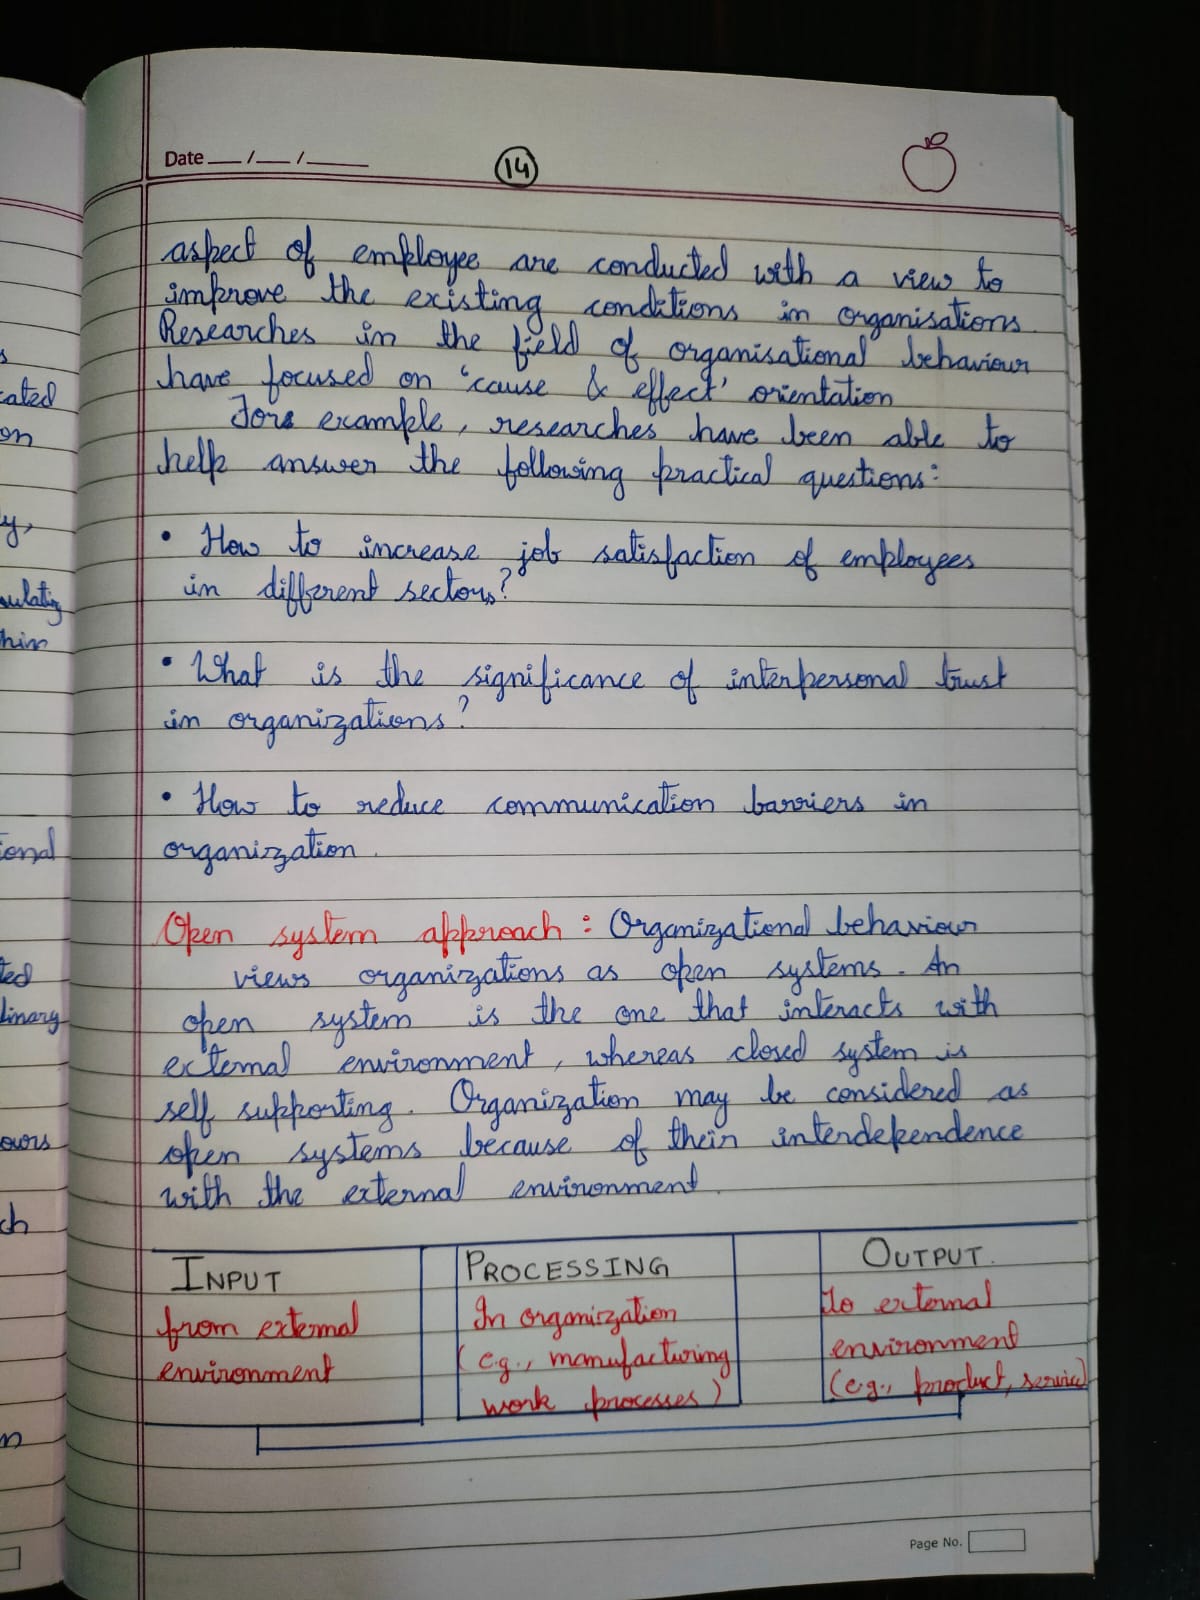 Date __/__/____
14
aspect of employee are conducted with a view to
improve the existing conditions in organisations.
Researches in the field of organisational behaviour
have focused on 'cause & effect' orientation
For example, researches have been able to
help answer the following practical questions:
• How to increase job satisfaction of employees
in different sectors?
• What is the significance of interpersonal trust
in organizations?
• How to reduce communication barriers in
organization.
Open system approach: Organizational behaviour
views organizations as open systems. An
open system is the one that interacts with
external environment, whereas closed system is
self supporting. Organization may be considered as
open systems because of their interdependence
with the external environment.
INPUT
from external
environment
PROCESSING
In organization
(e.g., manufacturing
work processes)
OUTPUT.
to external
environment
(e.g., product, service)
Page No.
cated
on
y,
him
ional
ted
linary
ours
ch
n